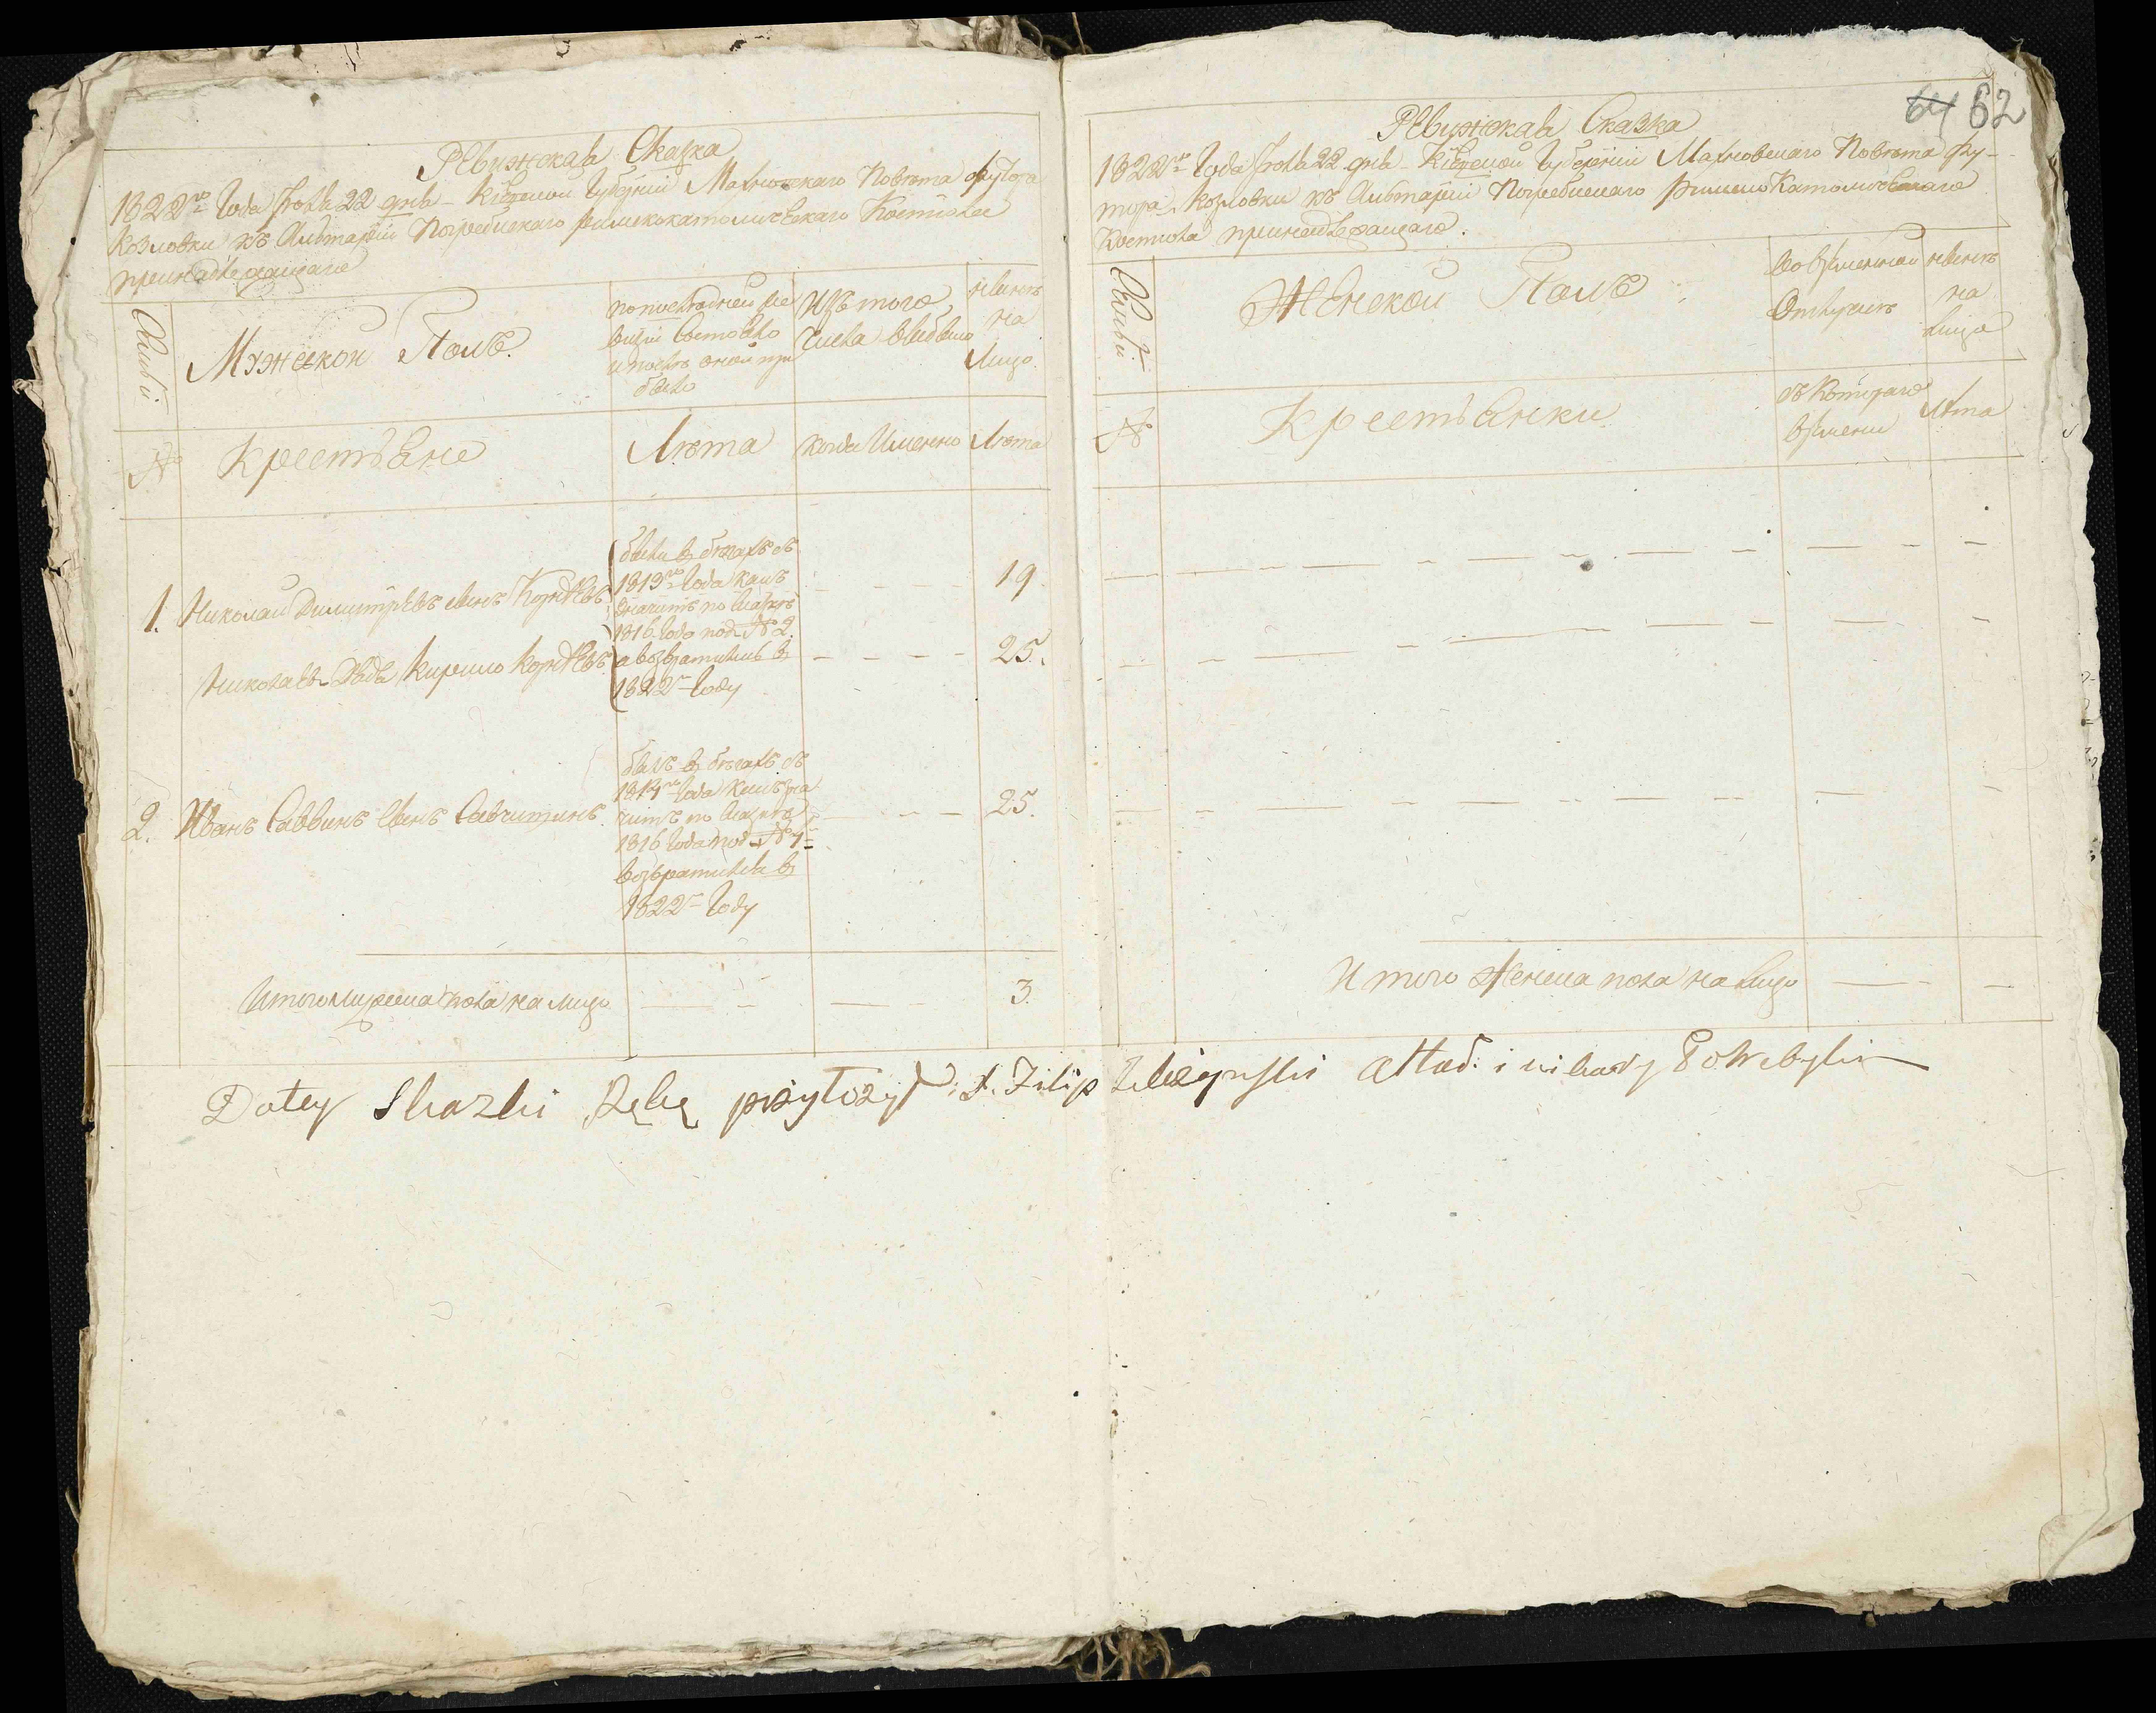 Ревижская Сказка
1822го Года Июля 22 дня Кіевской Губерніи Махновскаго Повѣта футора
Козловки къ Альтаріи Погребискаго римскокатолическаго Костіола
принадлежащаго
Семьи
Мужскои Полъ.
по последней ре
визіи Состояло
и послѣ оной при
было
Изъ того
числа выбыло
нынѣ
на
Лицо
№
Крестьяне
Лѣта
когда Именно
Лѣта
1. Николай Димитріевъ сынъ
были въ бѣгахъ съ
1813го Года какъ
значитъ по сказкѣ
1816 Года под №2
а возвратились въ
1822м Году
19.
Николаевъ Дядя Кирило
25.
2. Иванъ Саввинъ сынъ Савчитинъ
былъ въ бѣгахъ съ
1814го Года какъ зна
читъ по сказкѣ
1816 Года под №1м
возвратился въ
1822м Году
25.
Итого мужеска пола на лицо
3.
64 62
Ревижская Сказка
1822го Года Июля 22 дня Кіевской Губерніи Махновскаго Повѣта фу-
тора Козловки къ Альтаріи Погребискаго Римско Католическаго
Костіола принадлежащаго.
Семьи
Женскои Полъ
Во временной
Отлучкѣ
нынѣ
на
лицо
№
Крестьянки
съ Котораго
времени
Лѣта
Итого Женска пола на лицо
Dotey Skazki Rękę przyłożył X. Filip Altad: i wikary Pohrebyski